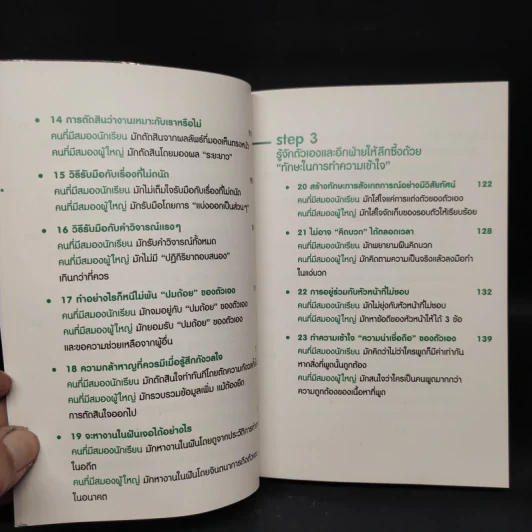 14 การตัดสินว่างานเหมาะกับเราหรือไม่
คนที่มีสมองนักเรียน มักตัดสินจากผลลัพธ์ที่มองเห็นตรงหน้า
คนที่มีสมองผู้ใหญ่ มักตัดสินโดยมองผล "ระยะยาว"
15 วิธีรับมือกับเรื่องที่ไม่ถนัด
คนที่มีสมองนักเรียน มักไม่เต็มใจรับมือกับเรื่องที่ไม่ถนัด
คนที่มีสมองผู้ใหญ่ มักรับมือโดยการ "แบ่งออกเป็นส่วนๆ"
16 วิธีรับมือกับคำวิจารณ์แรงๆ
คนที่มีสมองนักเรียน มักรับคำวิจารณ์ทั้งหมด
คนที่มีสมองผู้ใหญ่ มักไม่มี "ปฏิกิริยาตอบสนอง"
เกินกว่าที่ควร
17 ทำอย่างไรก็หนีไม่พ้น "ปมด้อย" ของตัวเอง
คนที่มีสมองนักเรียน มักจมอยู่กับ "ปมด้อย" ของตัวเอง
คนที่มีสมองผู้ใหญ่ มักยอมรับ "ปมด้อย" ของตัวเอง
และขอความช่วยเหลือจากผู้อื่น
18 ความกล้าหาญที่ควรมีเมื่อรู้สึกกังวลใจ
คนที่มีสมองนักเรียน มักตัดสินใจทำทันทีโดยตัดความกังวลทิ้ง
คนที่มีสมองผู้ใหญ่ มักรวบรวมข้อมูลเพิ่ม แม้ต้องยืด
การตัดสินใจออกไป
19 จะหางานในฝันเจอได้อย่างไร
คนที่มีสมองนักเรียน มักหางานในฝันโดยดูจากประวัติการทำงาน
ในอดีต
คนที่มีสมองผู้ใหญ่ มักหางานในฝันโดยจินตนาการถึงตัวเอง
ในอนาคต
step 3
รู้จักตัวเองและอีกฝ่ายให้ลึกซึ้งด้วย
"ทักษะในการทำความเข้าใจ"
20 สร้างทักษะการสังเกตการณ์อย่างมีวิสัยทัศน์ 122
คนที่มีสมองนักเรียน มักใส่ใจแค่การแต่งตัวของตัวเอง
คนที่มีสมองผู้ใหญ่ มักใส่ใจจัดเก็บของรอบตัวให้เรียบร้อย
21 ไม่อาจ "คิดบวก" ได้ตลอดเวลา 128
คนที่มีสมองนักเรียน มักพยายามฝืนคิดบวก
คนที่มีสมองผู้ใหญ่ มักคิดตามความเป็นจริงแล้วลงมือทำ
ในแง่บวก
22 การอยู่ร่วมกับหัวหน้าที่ไม่ชอบ 132
คนที่มีสมองนักเรียน มักไม่ยุ่งกับหัวหน้าที่ไม่ชอบ
คนที่มีสมองผู้ใหญ่ มักหาข้อดีของหัวหน้าให้ได้ 3 ข้อ
23 ทำความเข้าใจ "ความน่าเชื่อถือ" ของตัวเอง 139
คนที่มีสมองนักเรียน มักคิดว่าไม่ว่าใครพูดก็มีค่าเท่ากัน
หากสิ่งที่พูดนั้นถูกต้อง
คนที่มีสมองผู้ใหญ่ มักสนใจว่าใครเป็นคนพูดมากกว่า
ความถูกต้องของเนื้อหาที่พูด